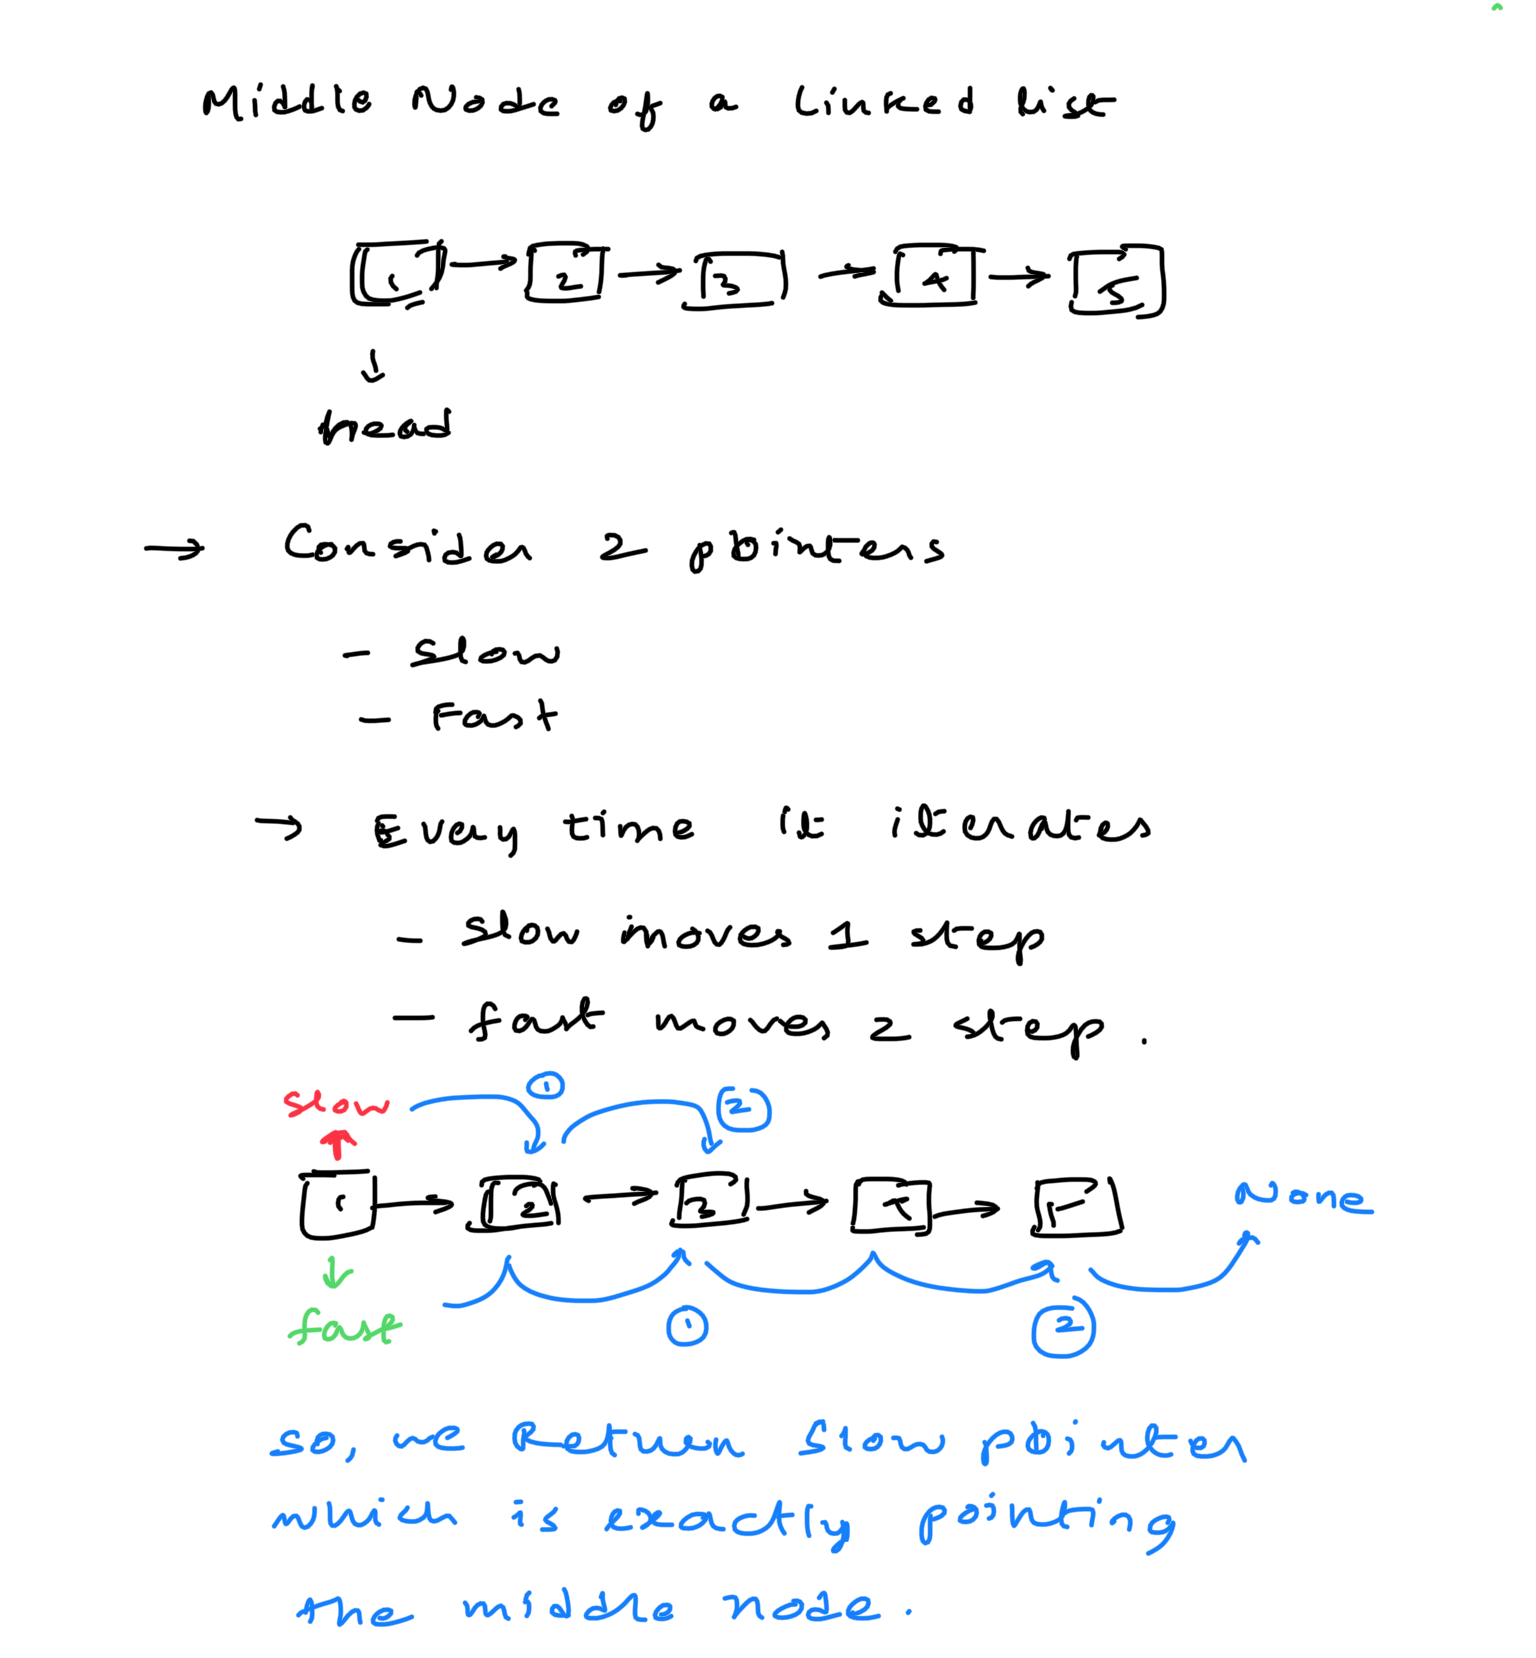 Middle Node of a Linked List
1 → 2 → 3 → 4 → 5
↓
head
→ Consider 2 pointers
- Slow
- Fast
→ Every time it iterates
- Slow moves 1 step
- fast moves 2 step.
slow 1 2
1 → 2 → 3 → 4 → 5 None
fast 1 2
so, we Return slow pointer
which is exactly pointing
the middle node.